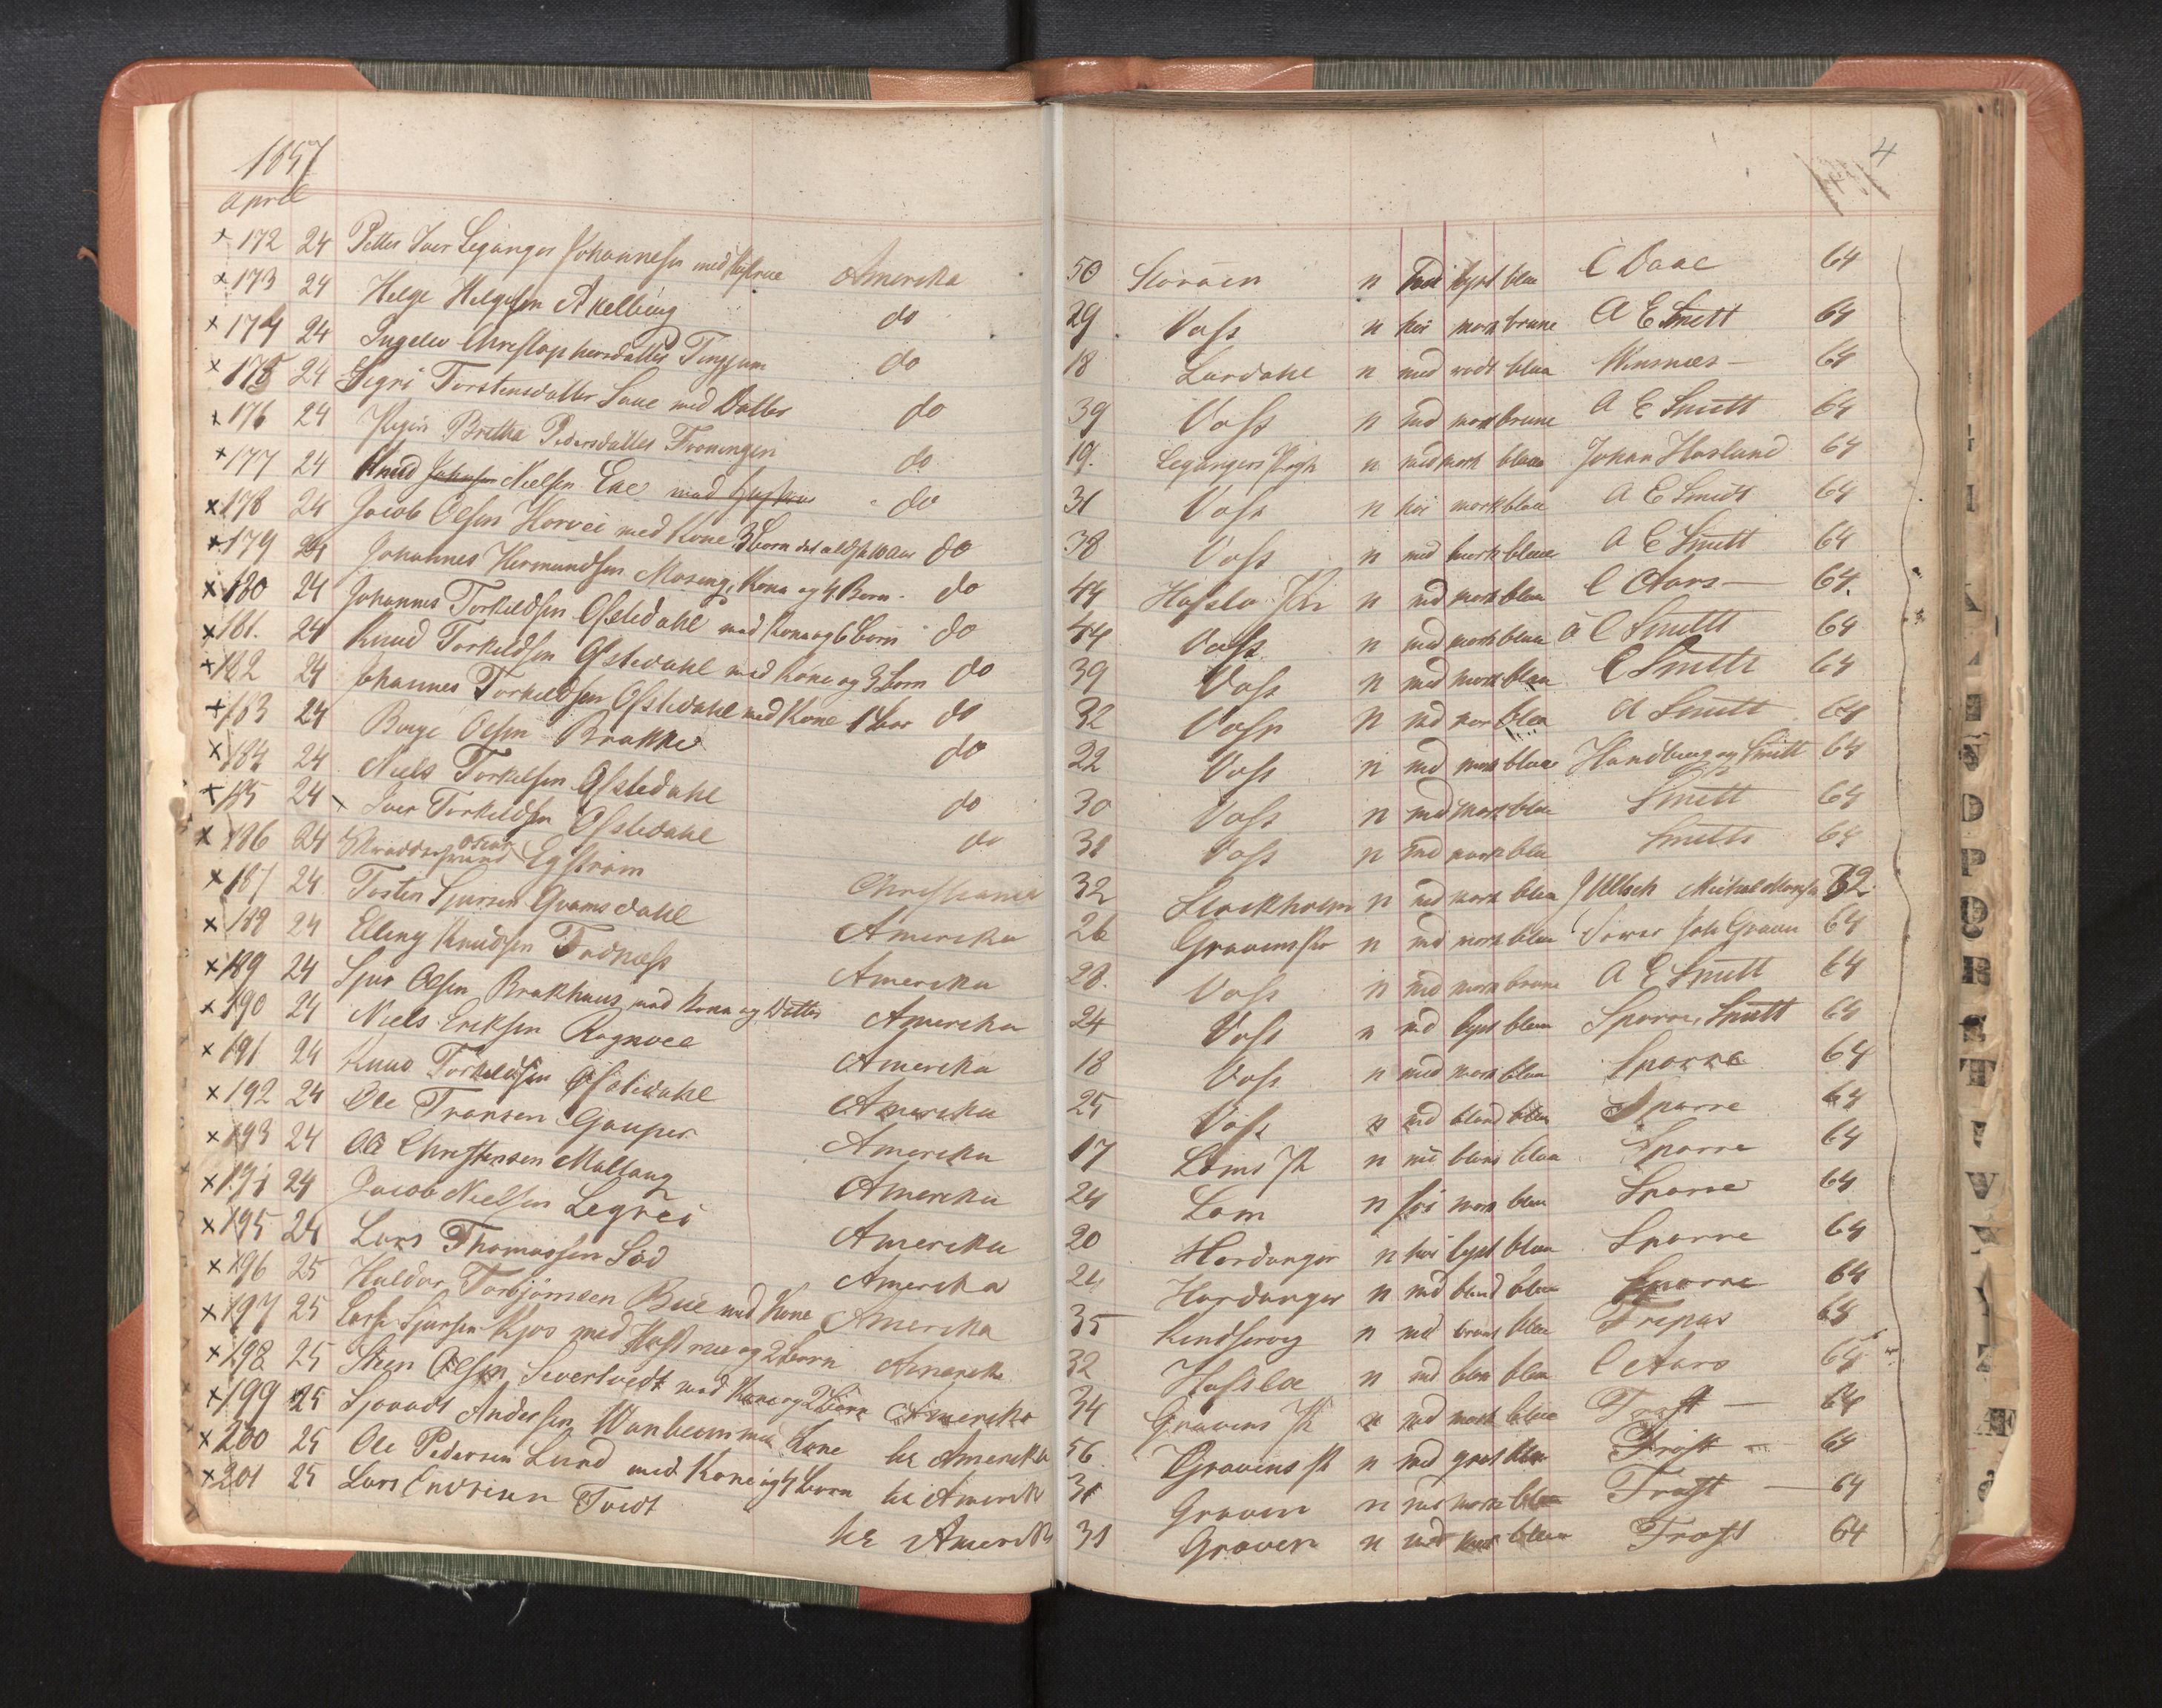 1857
4
April
172 24 Petter Iver Leganger Johannesen med Hustrue Amerika 50 n lyst blaa C Daae 64
173 24 Helge Helgesen do 29 Voss n høi mørk brune A E Smitt 64
174 24 Ingelev Christophersdatter do 18 Lærdahl n med rødt blaa 64
175 24 Sigri Torstensdatter Saue med Datter do 39 Voss n med mørk brune A E Smitt 64
176 24 Pigen Britha Pedersdatter Froningen do 19 Leganger n med mørk blaa Johan Hasland 64
177 24 Knud Johnsen Nielsen Eae med Hustrue do 31 Voss n høi mørk blaa A E Smitt 64
178 24 Jacob Olsen Horvei med Kone 3 Børn det ældste 10 Aar do 38 Voss n med mørk blaa A E Smitt 64
179 24 Johannes Hermundsen Moseng, Kone og 4 Børn do 44 Hafslo n med mørk blaa C Aars 64
180 24 Johannes Torkildsen Ofstedahl med Kone og 6 Børn do 44 Voss n med mørk blaa A E Smitt 64
181 24 Knud Torkildsen Ofstedahl med Kone og 3 Børn do 39 Voss n med mørk blaa E Smitt 64
182 24 Johannes Torkildsen Ofstedahl med Kone 1 Bar do 32 Voss n med mør blaa A Smitt 64
183 24 Olsen Brække do 22 Voss n med mørk blaa Handberg og Smitt 64
184 24 Niels Torkelsen Ofstedahl do 30 Voss n med mørk blaa Smitt 64
185 24 Iver Torkildsen Ofstedahl do 31 Voss n med mørk blaa Smitt 64
186 24 Skræddersvend Oscar Egstrøm Christiania 32 Stockholm n med mørk blaa 32
187 24 Tosten Sjursen Gvamsdahl Amerika 26 Gravens n med mørk blaa Graven 64
188 24 Elling Knudsen Amerika 28 Voss n med mørk brune A E Smitt 64
189 24 Sjur Olsen Brækhuus med Kone og Datter Amerika 24 Voss n med lyst blaa Sparre, Smitt 64
190 24 Niels Eriksen Rognvee Amerika 18 Voss n med mørk blaa Sparre 64
191 24 Knud Torkeldsen Ofstedahl Amerika 25 Voss n med bland blaa Sparre 64
192 24 Ole Transen Gaupers Amerika 17 Loms P n med bland blaa Sparre 64
193 24 Ole Christensen Amerika 24 Lom n høi mørk blaa Sparre 64
194 24 Jacob Nielsen Legrei Amerika 20 Hardanger n høi lyst blaa Sparre 64
195 24 Lars Thomassen Amerika 24 Hardanger n med bland blaa Sparre 64
196 25 Haldor Torbjørnsen Bue med Kone Amerika 35 Kindservig n med bruns blaa 64
197 25 Lasse Sjursen Kjos med Hustrue og 2 Børn Amerika 32 Hafsloe n med blaa blaa C Aars 64
198 25 Sten Olsen med Kone og 2 Børn Amerika 34 Gravens P n med mørk blaa Trost 64
199 25 Sjovadt Andersen med Kone til Amerika 56 Gravens P n med graat blaa Trost 64
200 25 Ole Pedersen Lund med Kone og 4 Børn til Amerika 31 Graven n med mørk blaa Trost 64
201 25 Lars Endresen Tvedt til Amerika 31 Graven n med mørk blaa Trost 64